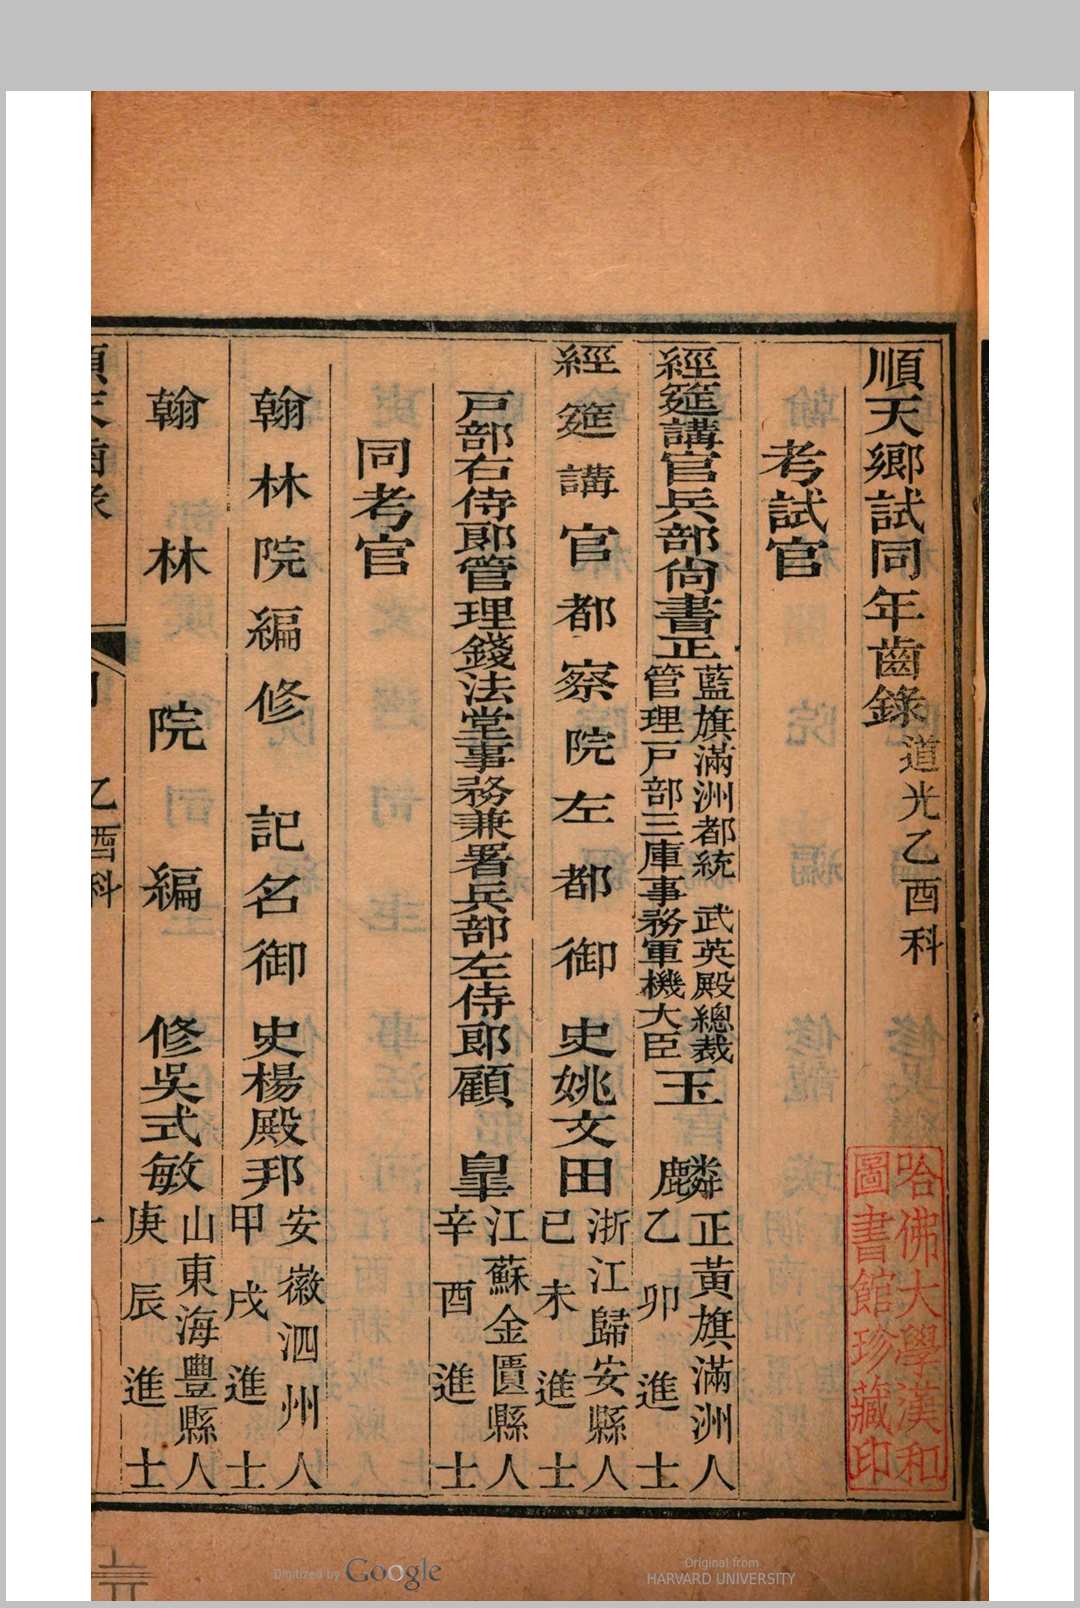 順天鄉試同年齒錄道光乙酉科
考試官
經筵講官兵部尚書正藍旗滿洲都統 武英殿總裁
管理戶部三庫事務軍機大臣玉 麟正黃旗滿洲人
乙卯進士
經筵講官都察院左都御史姚文田浙江歸安縣人
己未進士
戶部右侍郎管理錢法堂事務兼署兵部左侍郎顧 皋江蘇金匱縣人
辛酉進士
同考官
翰林院編修 記名御史楊殿邦安徽泗州人
甲戌進士
翰林院編修吳式敏山東海豐縣人
庚辰進士
乙酉科
一
哈佛大學漢和
圖書館珍藏印
Digitized by Google
Original from
HARVARD UNIVERSITY